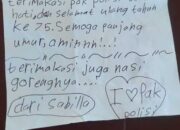 terimakasi pak polisi
hati, dan selamat ulang tahun
ke 75. Semoga panjang
umur, aminnn!..!
terimakasi juga nasi
gorengnya....
dari Sabilla
I ♡ Pak
polisi